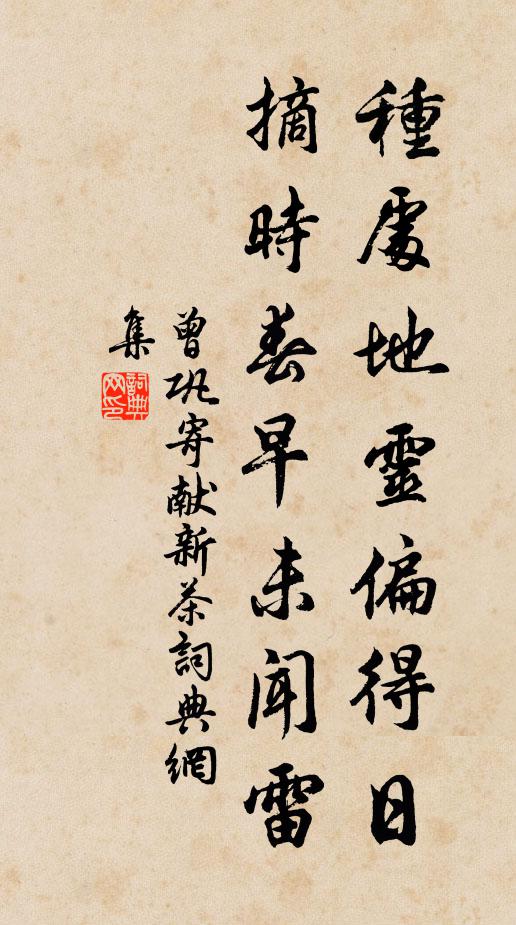 種處地靈偏得日
摘時春早未聞雷
曾巩寄献新茶詞典網
集
詞典
网印